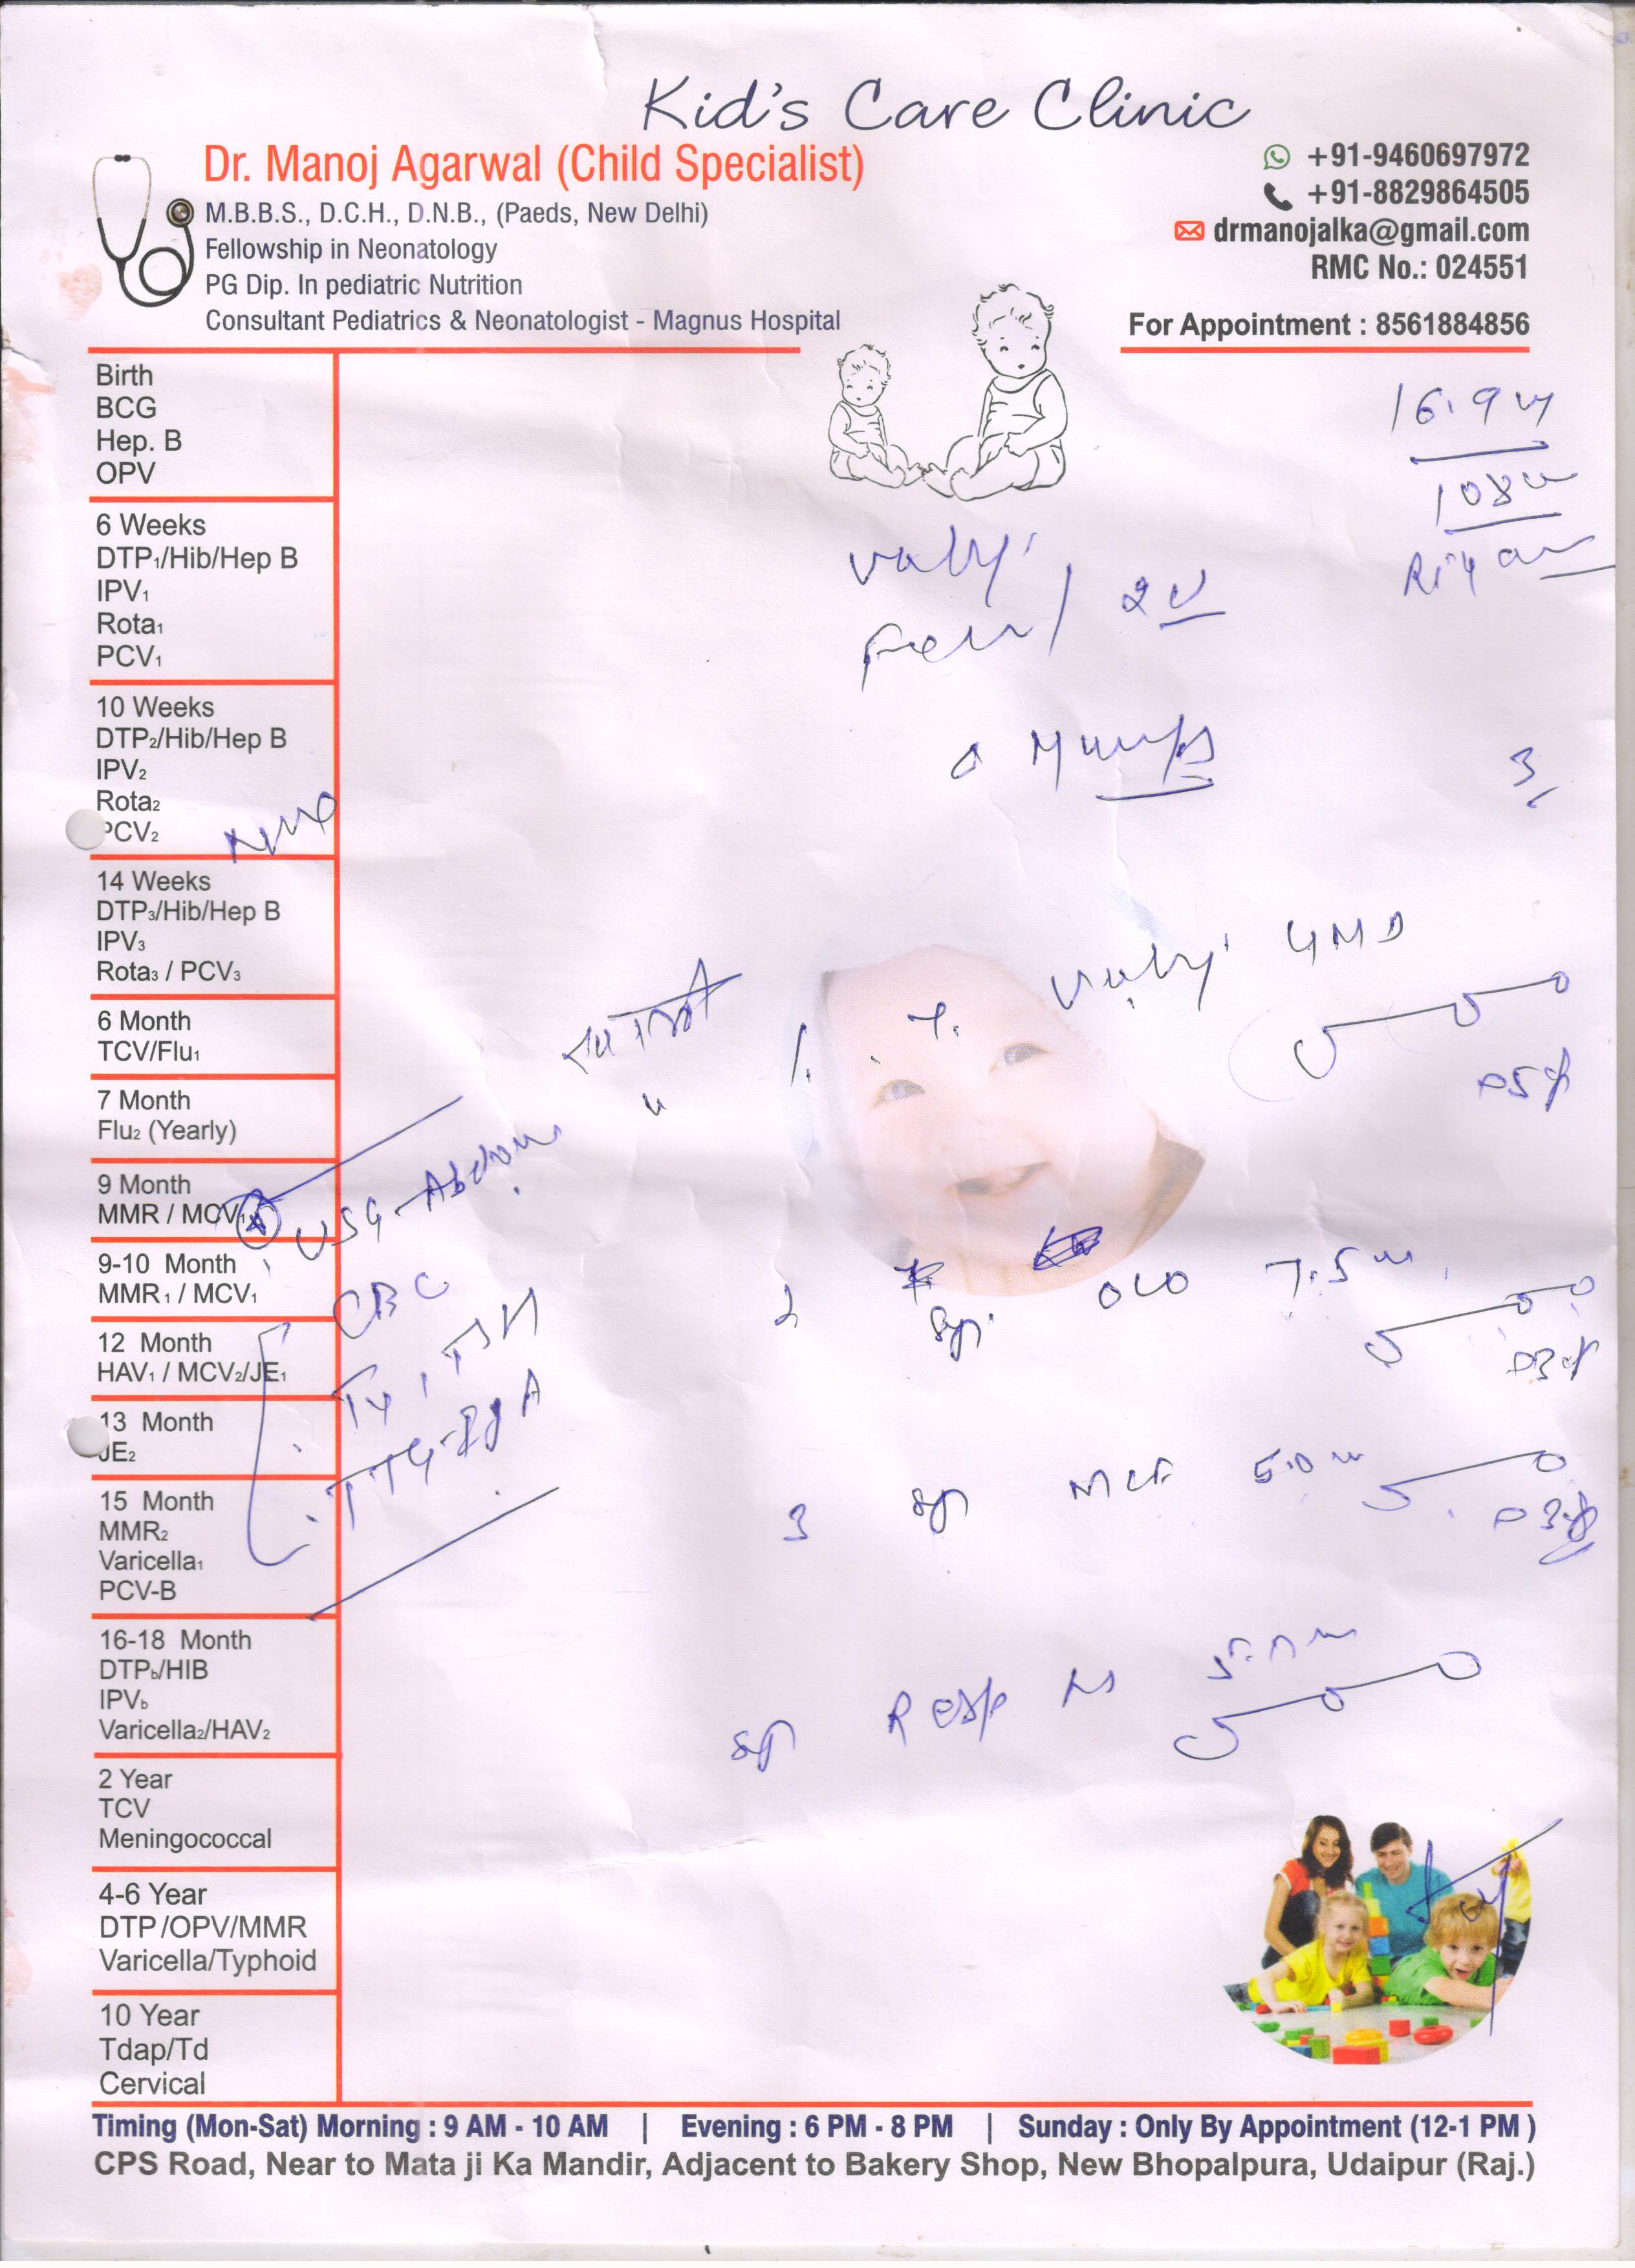 Kid's Care Clinic
Dr. Manoj Agarwal (Child Specialist)
M.B.B.S., D.C.H., D.N.B., (Paeds, New Delhi)
Fellowship in Neonatology
PG Dip. In pediatric Nutrition
Consultant Pediatrics & Neonatologist - Magnus Hospital
+91-9460697972
+91-8829864505
drmanojalka@gmail.com
RMC No.: 024551
For Appointment : 8561884856
Birth
BCG
Hep. B
OPV
6 Weeks
DTP1/Hib/Hep B
IPV1
Rota1
PCV1
10 Weeks
DTP2/Hib/Hep B
IPV2
Rota2
PCV2
14 Weeks
DTP3/Hib/Hep B
IPV3
Rota3 / PCV3
6 Month
TCV/Flu1
7 Month
Flu2 (Yearly)
9 Month
MMR / MCV1
9-10 Month
MMR1 / MCV1
12 Month
HAV1 / MCV2/JE1
13 Month
JE2
15 Month
MMR2
Varicella1
PCV-B
16-18 Month
DTPb/HIB
IPVb
Varicella2/HAV2
2 Year
TCV
Meningococcal
4-6 Year
DTP/OPV/MMR
Varicella/Typhoid
10 Year
Tdap/Td
Cervical
16.9
108
Riyan
Mumps
USG-Abdom
CBC
T4, TSH
TTG-IgA
1.
2 7.5
3 5.0
Timing (Mon-Sat) Morning : 9 AM - 10 AM | Evening : 6 PM - 8 PM | Sunday : Only By Appointment (12-1 PM )
CPS Road, Near to Mata ji Ka Mandir, Adjacent to Bakery Shop, New Bhopalpura, Udaipur (Raj.)